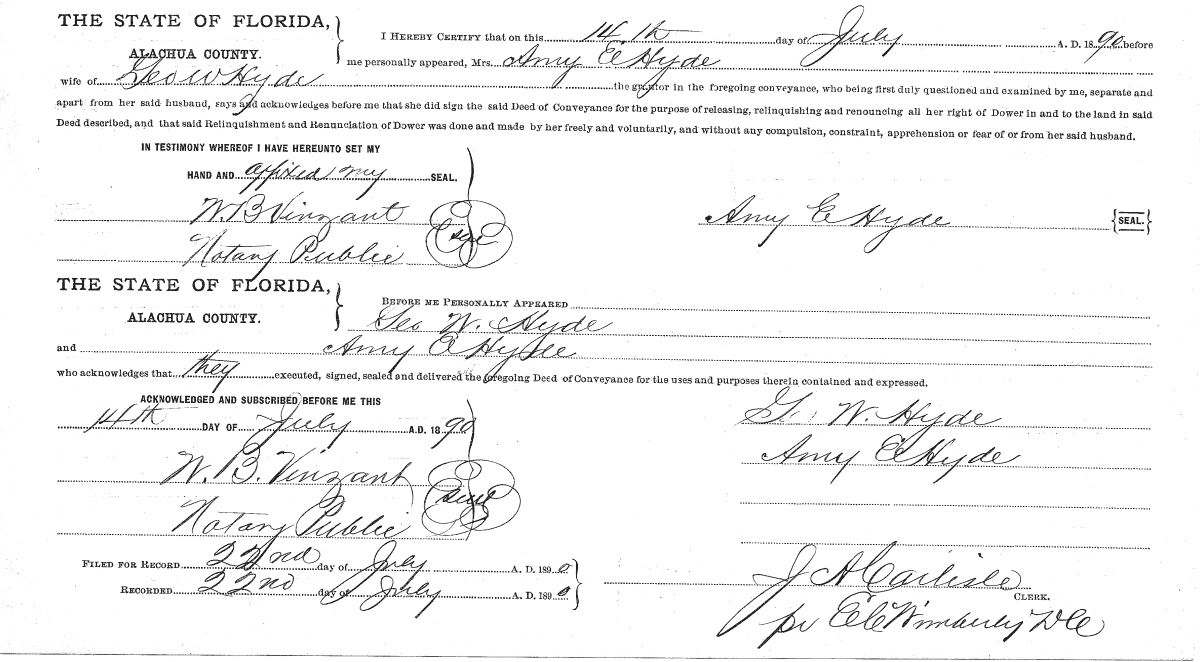 THE STATE OF FLORIDA,
ALACHUA COUNTY.
I HEREBY CERTIFY that on this 14th day of July A. D. 1890 before
me personally appeared, Mrs. Amy E Hyde
wife of Geo W Hyde the grantor in the foregoing conveyance, who being first duly questioned and examined by me, separate and
apart from her said husband, says and acknowledges before me that she did sign the said Deed of Conveyance for the purpose of releasing, relinquishing and renouncing all her right of Dower in and to the land in said
Deed described, and that said Relinquishment and Renunciation of Dower was done and made by her freely and voluntarily, and without any compulsion, constraint, apprehension or fear of or from her said husband.
IN TESTIMONY WHEREOF I HAVE HEREUNTO SET MY
HAND AND affixed my SEAL.
W. B Vinzant
Notary Public
Seal
Amy E Hyde {SEAL.}
THE STATE OF FLORIDA,
ALACHUA COUNTY.
BEFORE ME PERSONALLY APPEARED
Geo W. Hyde
and Amy E Hyde
who acknowledges that they executed, signed, sealed and delivered the foregoing Deed of Conveyance for the uses and purposes therein contained and expressed.
ACKNOWLEDGED AND SUBSCRIBED BEFORE ME THIS
14th DAY OF July A.D. 1890
W. B. Vinzant
Notary Public
Seal
Geo W. Hyde
Amy E Hyde
FILED FOR RECORD 22nd day of July A. D. 1890
RECORDED 22nd day of July A. D. 1890
J A Carlisle
CLERK.
pr E C Wimberly DC